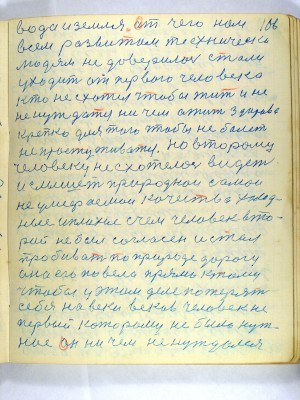 вода и земля. от чего нам 106
всем развитым технически
людям не доверилось стали
уходить от первого человека
кто не схотел чтобы жит и не
не нуждатся ни чем а жит здорово
крепко для того чтобы не болеть
не простуживатся. Но второму
человеку не схотелось видеть
и слышет природной самой
не умираемой качества уход-
ные и плохие с чем человек вто-
рый не был согласен и стал
пробиват по природе дорогу
она его повела прямо к тому
чтобы у этом деле потерят
себя на веки веков человек не
первый которому не было нуж-
ное он ни чем не нуждался